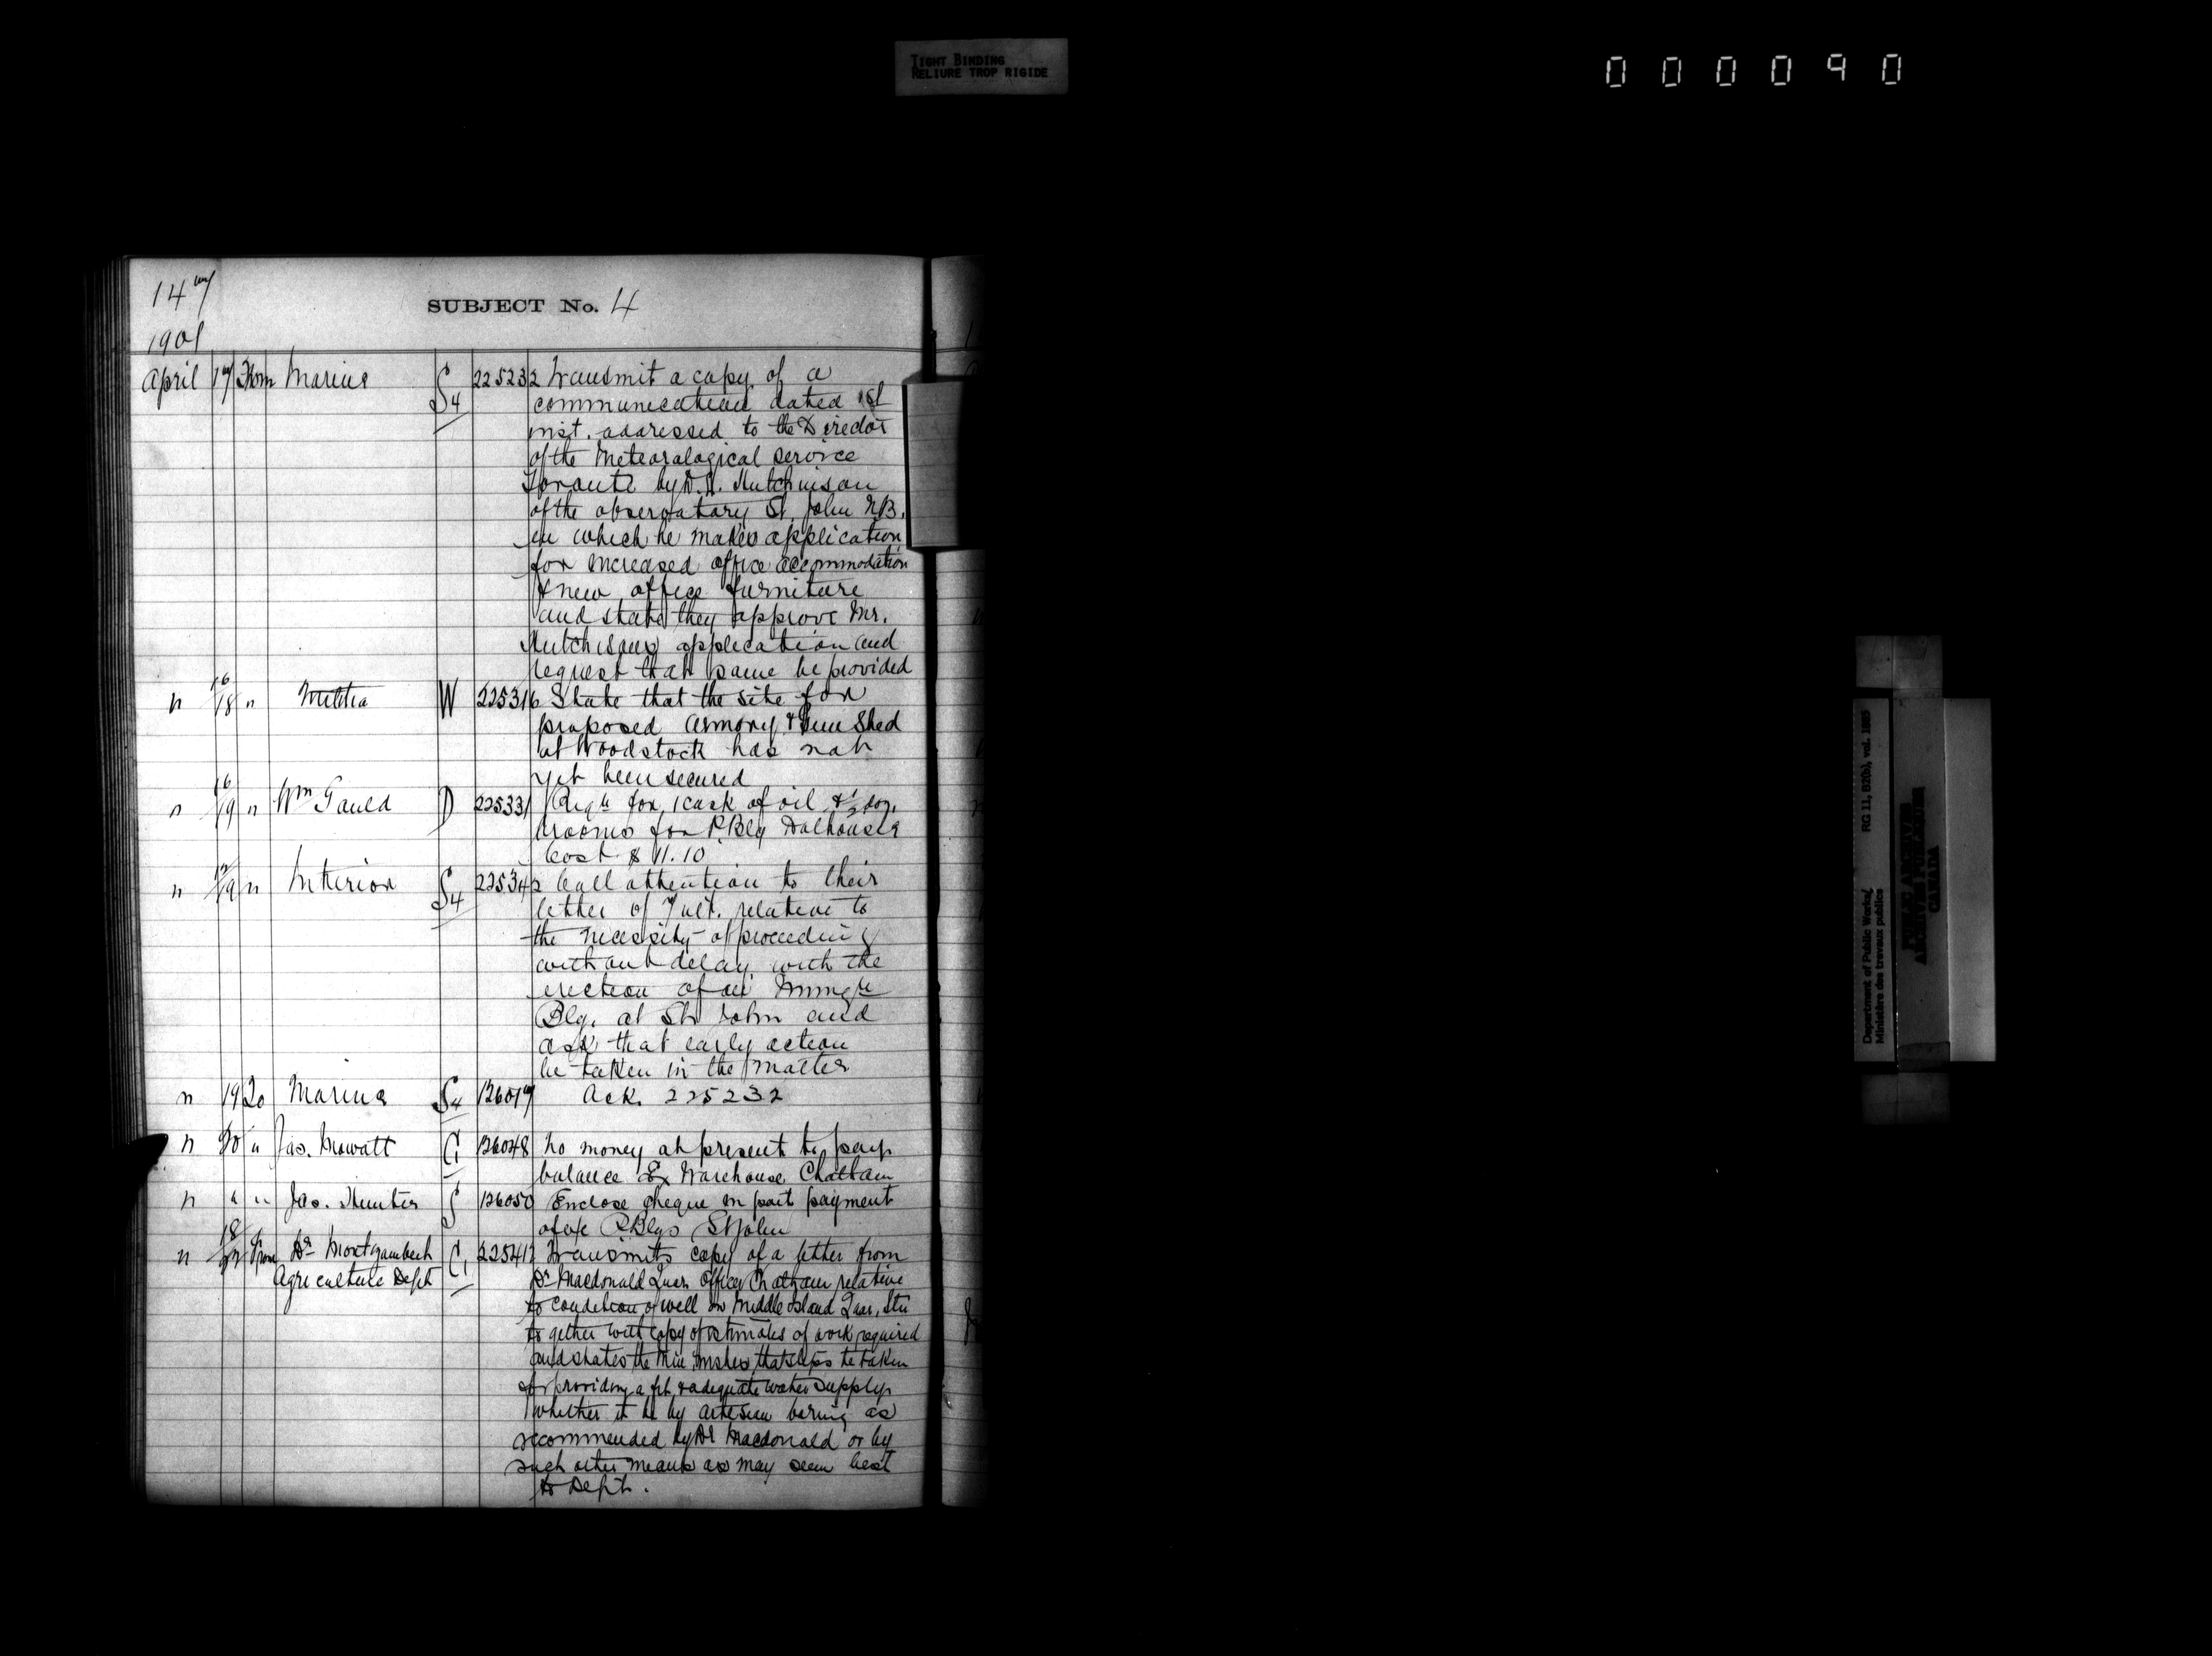 TIGHT BINDING
RELIURE TROP RIGIDE
000090
147
SUBJECT No. 4
1901
April 17 From Marine S4 225232 Transmit a copy of a
communication dated 1st
inst. addressed to the Director
of the Meteoralogical Service
Toronto by D.L. Hutchinson
of the observatory St. John N.B.
in which he makes application
for increased office accommodation
& new office furniture
and state they approve Mr.
Hutchisons application and
request that same be provided
" 16/18 " Militia W 225316 State that the site for
proposed armory & Gun Shed
at Woodstock has not
yet been secured
" 16/19 " Wm Gauld D 225331 Reqn for 1 cask of oil & 1/2 doz.
brooms for P. Blg Dalhousie
Cost $11.10
" 17/19 " Interior S4 225342 Call attention to their
letter of ult. relative to
the necessity of proceeding
without delay with the
erection of an Immgn
Blg. at St John and
ask that early action
be taken in the matter
" 19 To Marine S4 126017 Ack. 225232
" 20 " Jas. Mowatt C1 126048 No money at present to pay
balance Ex Warehouse Chatham
" " " Jas. Hunter S 126050 Enclose cheque in part payment
of a/c P. Blgs St John
" 18/22 From Dr Montizambert C1 225412 Transmits copy of a letter from
Agriculture Dept Dr Macdonald Quar. Officer Chatham relative
to condition of well on Middle Island Quar. Stn
together with copy of estimates of work required
and states the Min. wishes that steps be taken
for providing a fit & adequate water supply
whether it be by artesian boring as
recommended by Dr Macdonald or by
such other means as may seem best
to Dept.
Department of Public Works/ RG 11, B2(b), vol. 1885
Ministère des travaux publics
PUBLIC ARCHIVES
ARCHIVES PUBLIQUES
CANADA